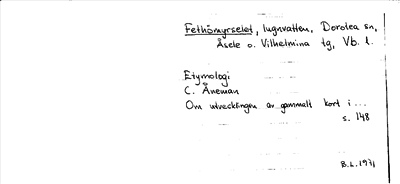 Fethömyrselet, lugnvatten, Dorotea sn,
Åsele o. Vilhelmina tg, Vb. l.
Etymologi
C. Åneman
Om utvecklingen av gammalt kort i ...
s. 148
B.L. 1971